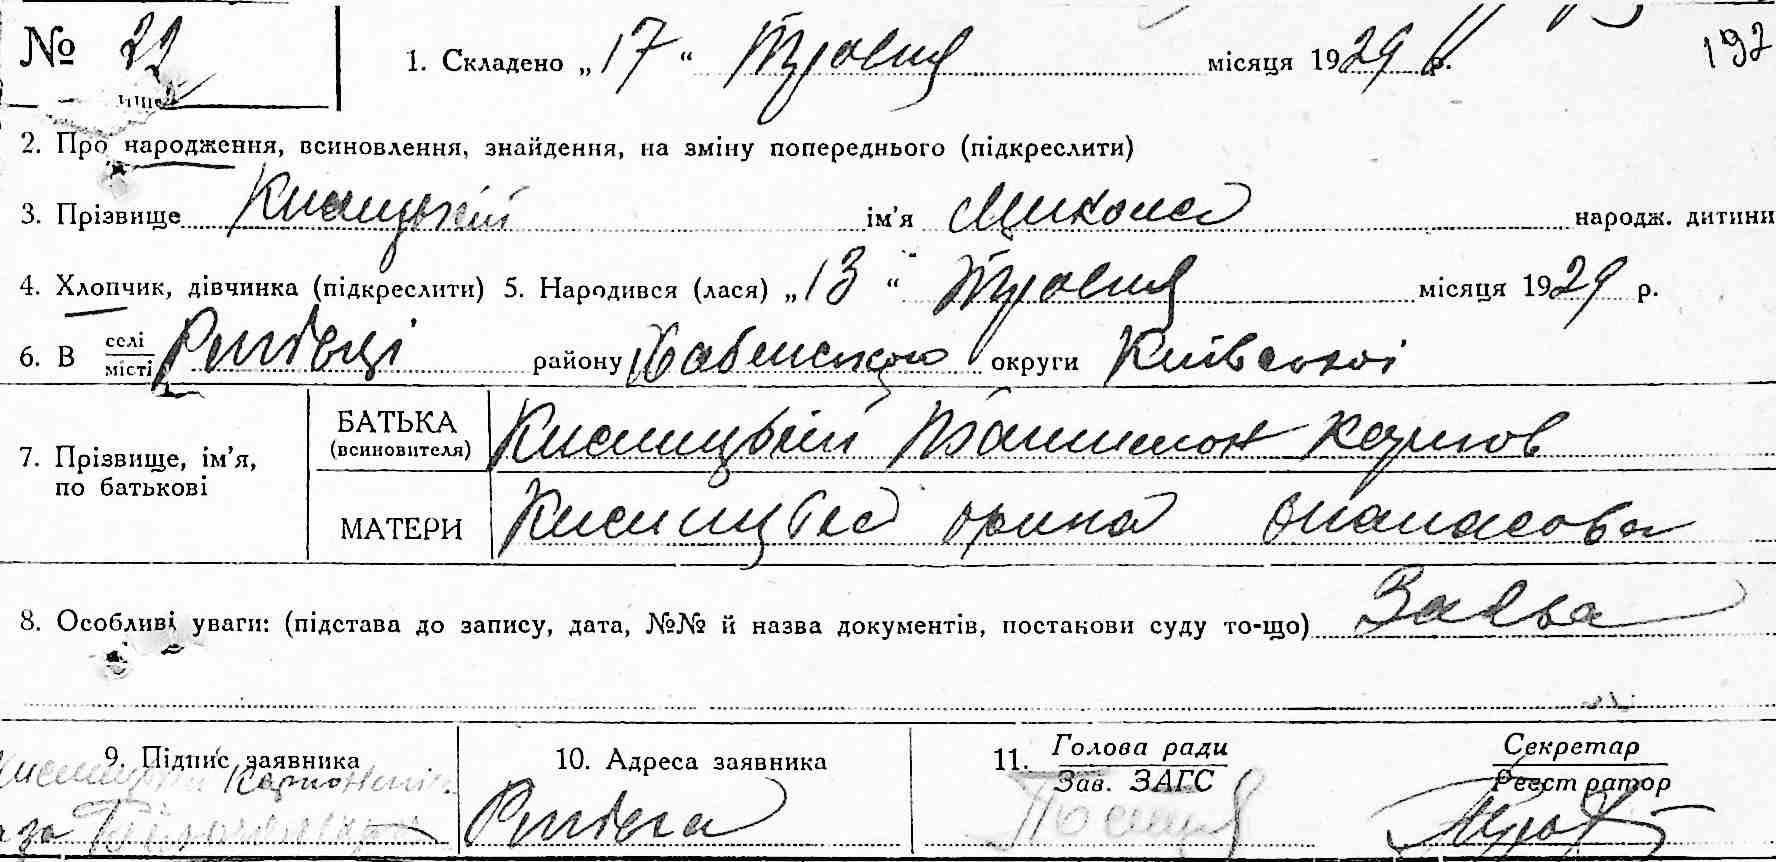 № 22
1. Складено „ 17 “ Травня місяця 1929 р. 192
2. Про народження, всиновлення, знайдення, на зміну попереднього (підкреслити)
3. Прізвище ім’я Микола народж. дитини
4. Хлопчик, дівчинка (підкреслити) 5. Народився (лася) „ 13 “ Травня місяця 1929 р.
6. В селі
місті Ритвці району Хабенського округи Київської
7. Прізвище, ім’я,
по батькові
БАТЬКА
(всиновителя)
Кислицький Карпов
МАТЕРИ Кислицька Орина Опанасова
8. Особливі уваги: (підстава до запису, дата, №№ й назва документів, постанови суду то-що) Заява
9. Підпис заявника
10. Адреса заявника
11. Голова ради
Зав. ЗАГС
Секретар
Реєстратор